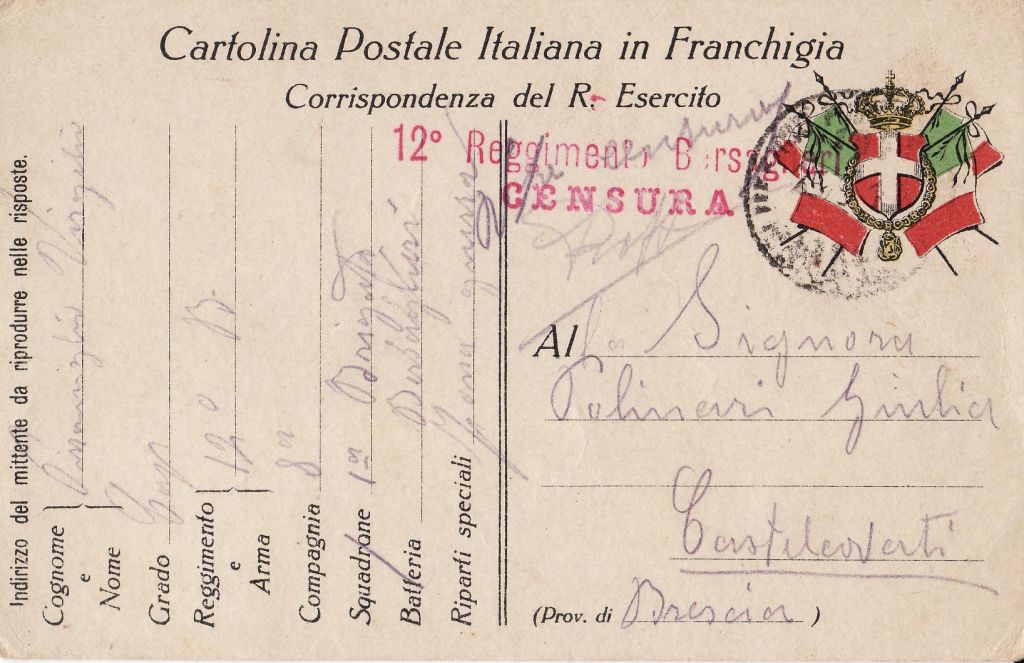 Cartolina Postale Italiana in Franchigia
Corrispondenza del R. Esercito
12° Reggimento Bersaglieri
CENSURA
censura
Al Signora
Giulia
Brescia
(Prov. di Brescia)
Indirizzo del mittente da riprodurre nelle risposte.
Cognome e Nome
Grado
Reggimento e Arma 12° B
Compagnia 8a
Squadrone 1a
Batteria Bersaglieri
Riparti speciali Zona guerra